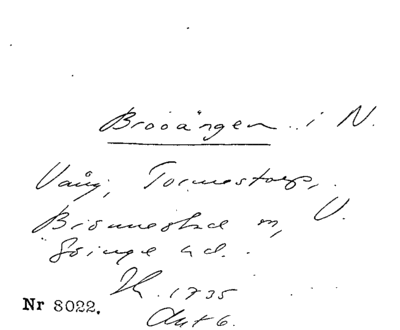 Brooängen i N.
Vång, Tormestorp,
Brönnestad sn, V.
Göinge hd.
Lk. 1735
Akt 6.
Nr 8022.